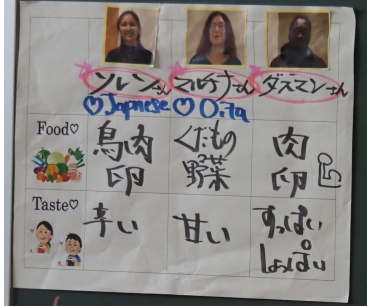 ソレンさん マルチナさん ダスマンさん
♡Japnese ♡Oita
Food♡ 鳥肉 くだもの 肉
卵 野菜 卵
Taste♡ 辛い 甘い すっぱい
しょっぱい